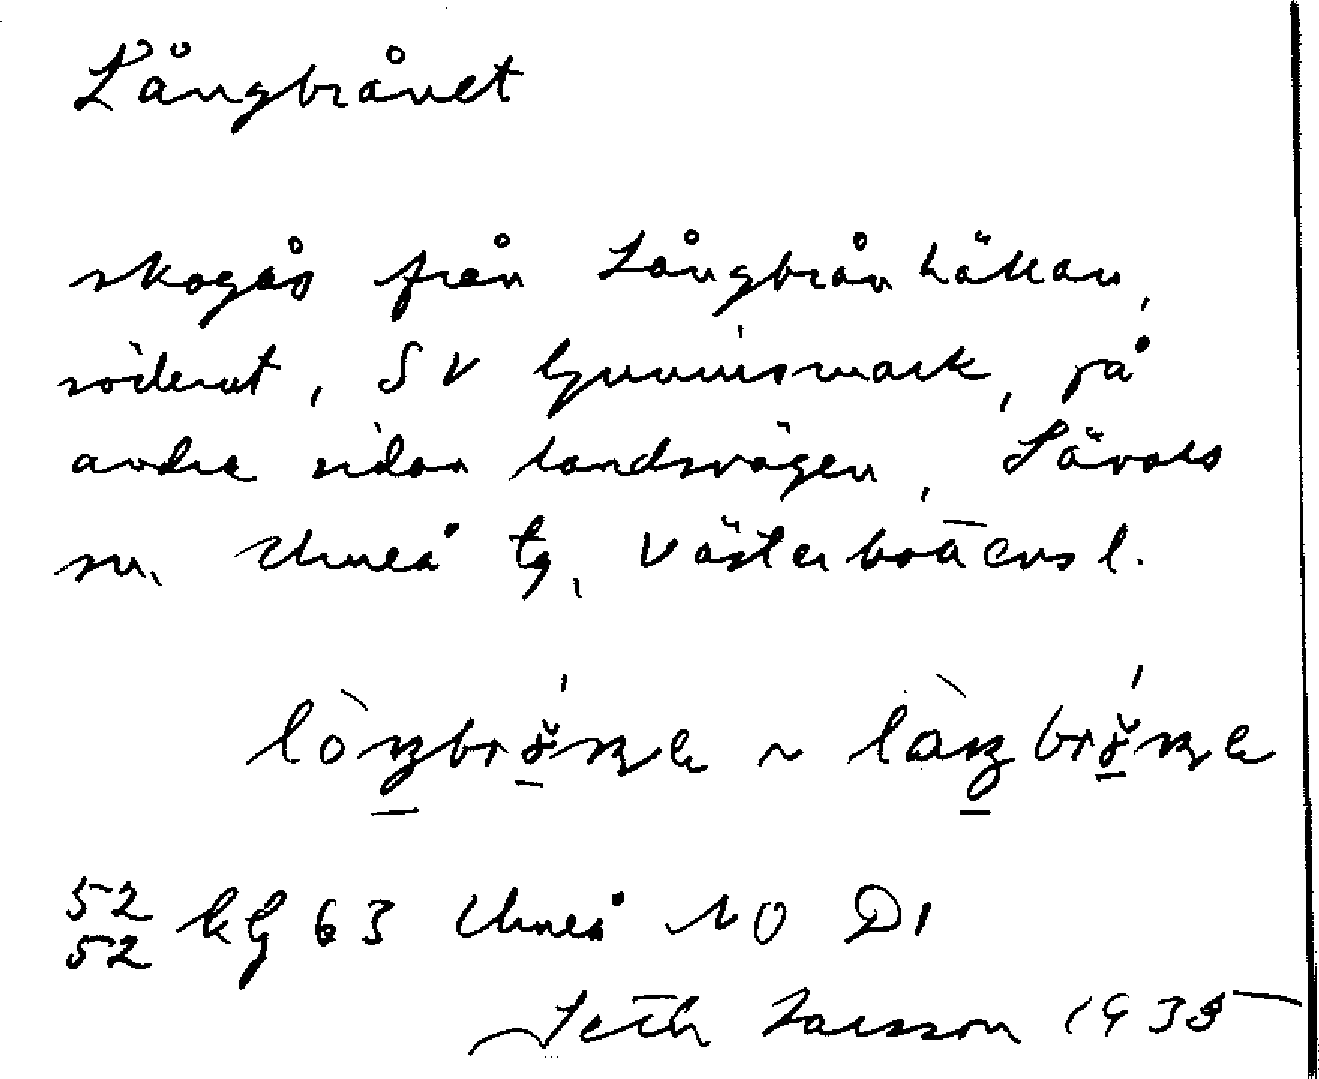 Långbrånet
skogås från Långbrånhällan,
söderut, SV Gunnismark, på
andra sidan landsvägen, Sävars
sn. Umeå tg, Västerbottens l.
52 kg 63 Umeå NO D1
52
Seth Larsson 1935